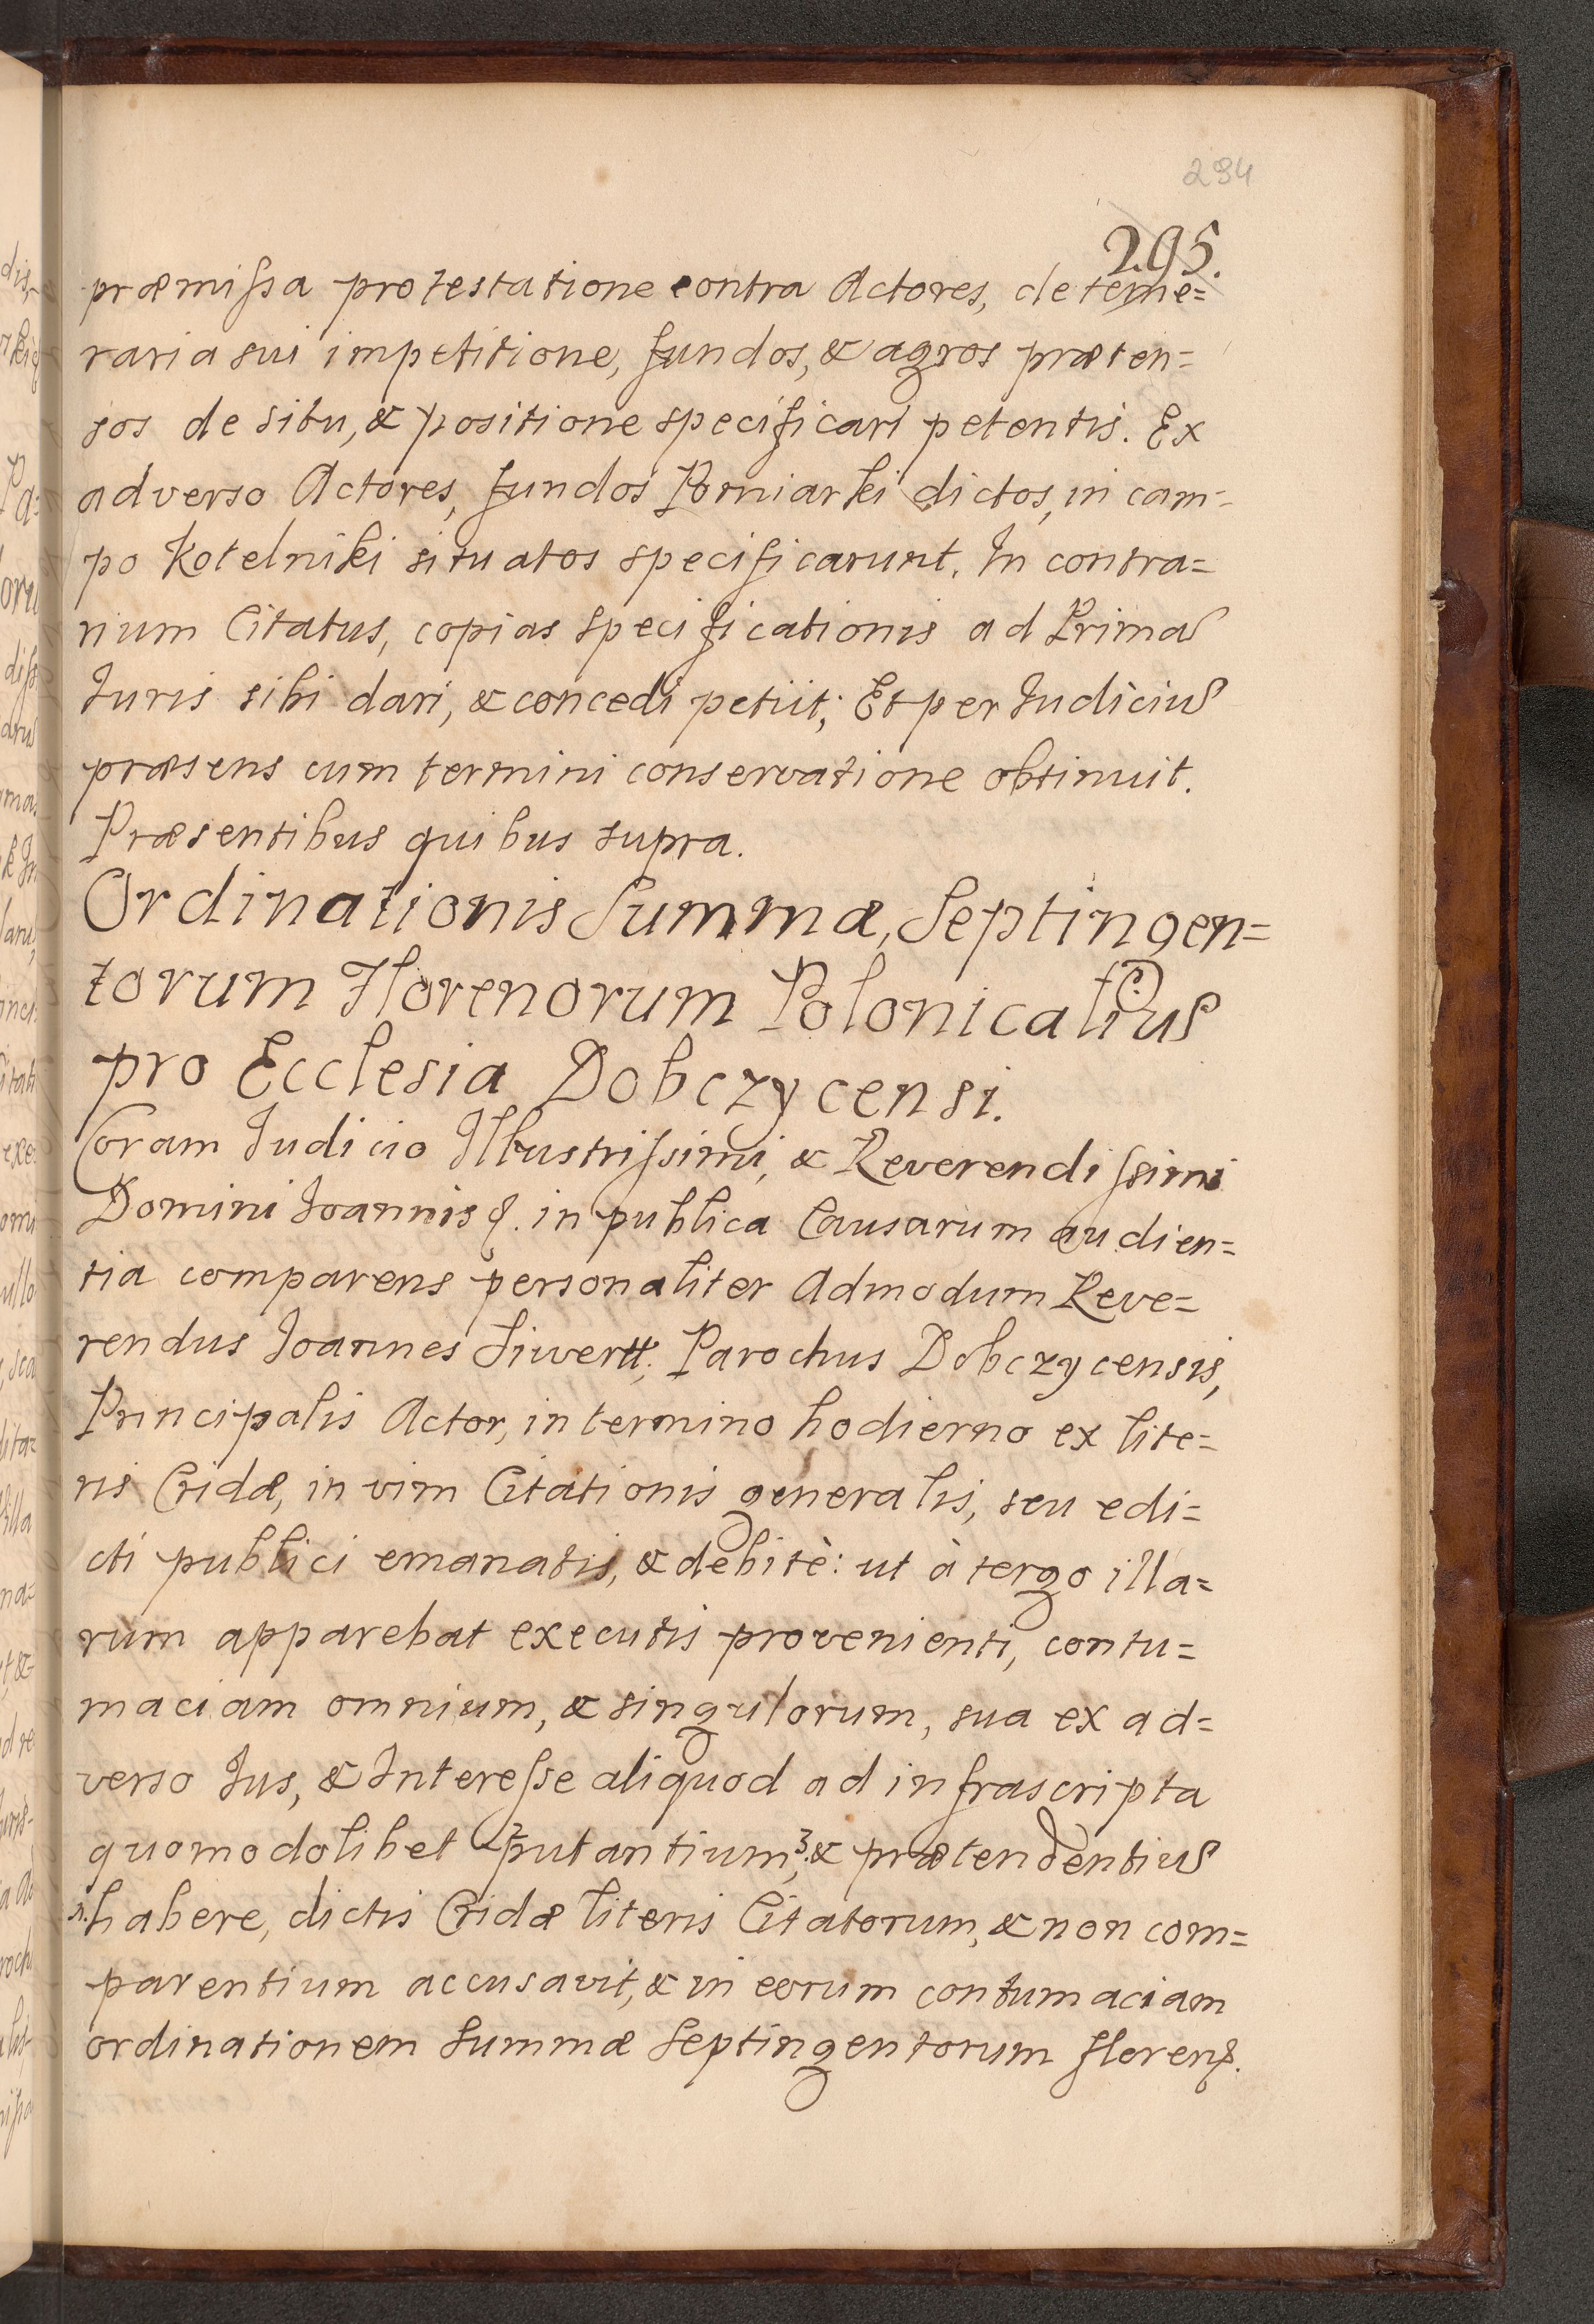 294
295.
præmissa protestatione contra Actores, de teme=
raria sui impetitione, fundos, & agros præten=
sos de situ, & positione specificari petentis. Ex
adverso Actores, fundos Porniarki dictos, in cam=
po Kotelniki situatos specificarunt. In contra=
rium Citatus, copias specificationis ad Prima
Iuris sibi dari, & concedi petiit; Et per Iudiciu
præsens cum termini conservatione obtinuit.
Præsentibus quibus supra.
Ordinationis Summæ, Septingen=
torum Florenorum Polonicaliu
pro Ecclesia Dobczycensi.
Coram Iudicio Illustrissimi, & Reverendissimi
Domini Ioannis &. in publica Causarum audien=
tia comparens personaliter Admodum Reve=
rendus Ioannes Siwertt, Parochus Dobczycensis,
Principalis Actor, in termino hodierno ex lite=
ris Cridæ, in vim Citationis generalis, seu edi=
cti publici emanatis, & debitè: ut à tergo illa=
rum apparebat executis provenienti, contu=
maciam omnium, & singulorum, sua ex ad=
verso Ius, & Interesse aliquod ad infrascripta
quomodolibet 2 putantium, 3 & prætendentiu
1. habere, dictis Cridæ literis Citatorum, & non com=
parentium accusavit, & in eorum contumaciam
ordinationem Summæ Septingentorum floren.